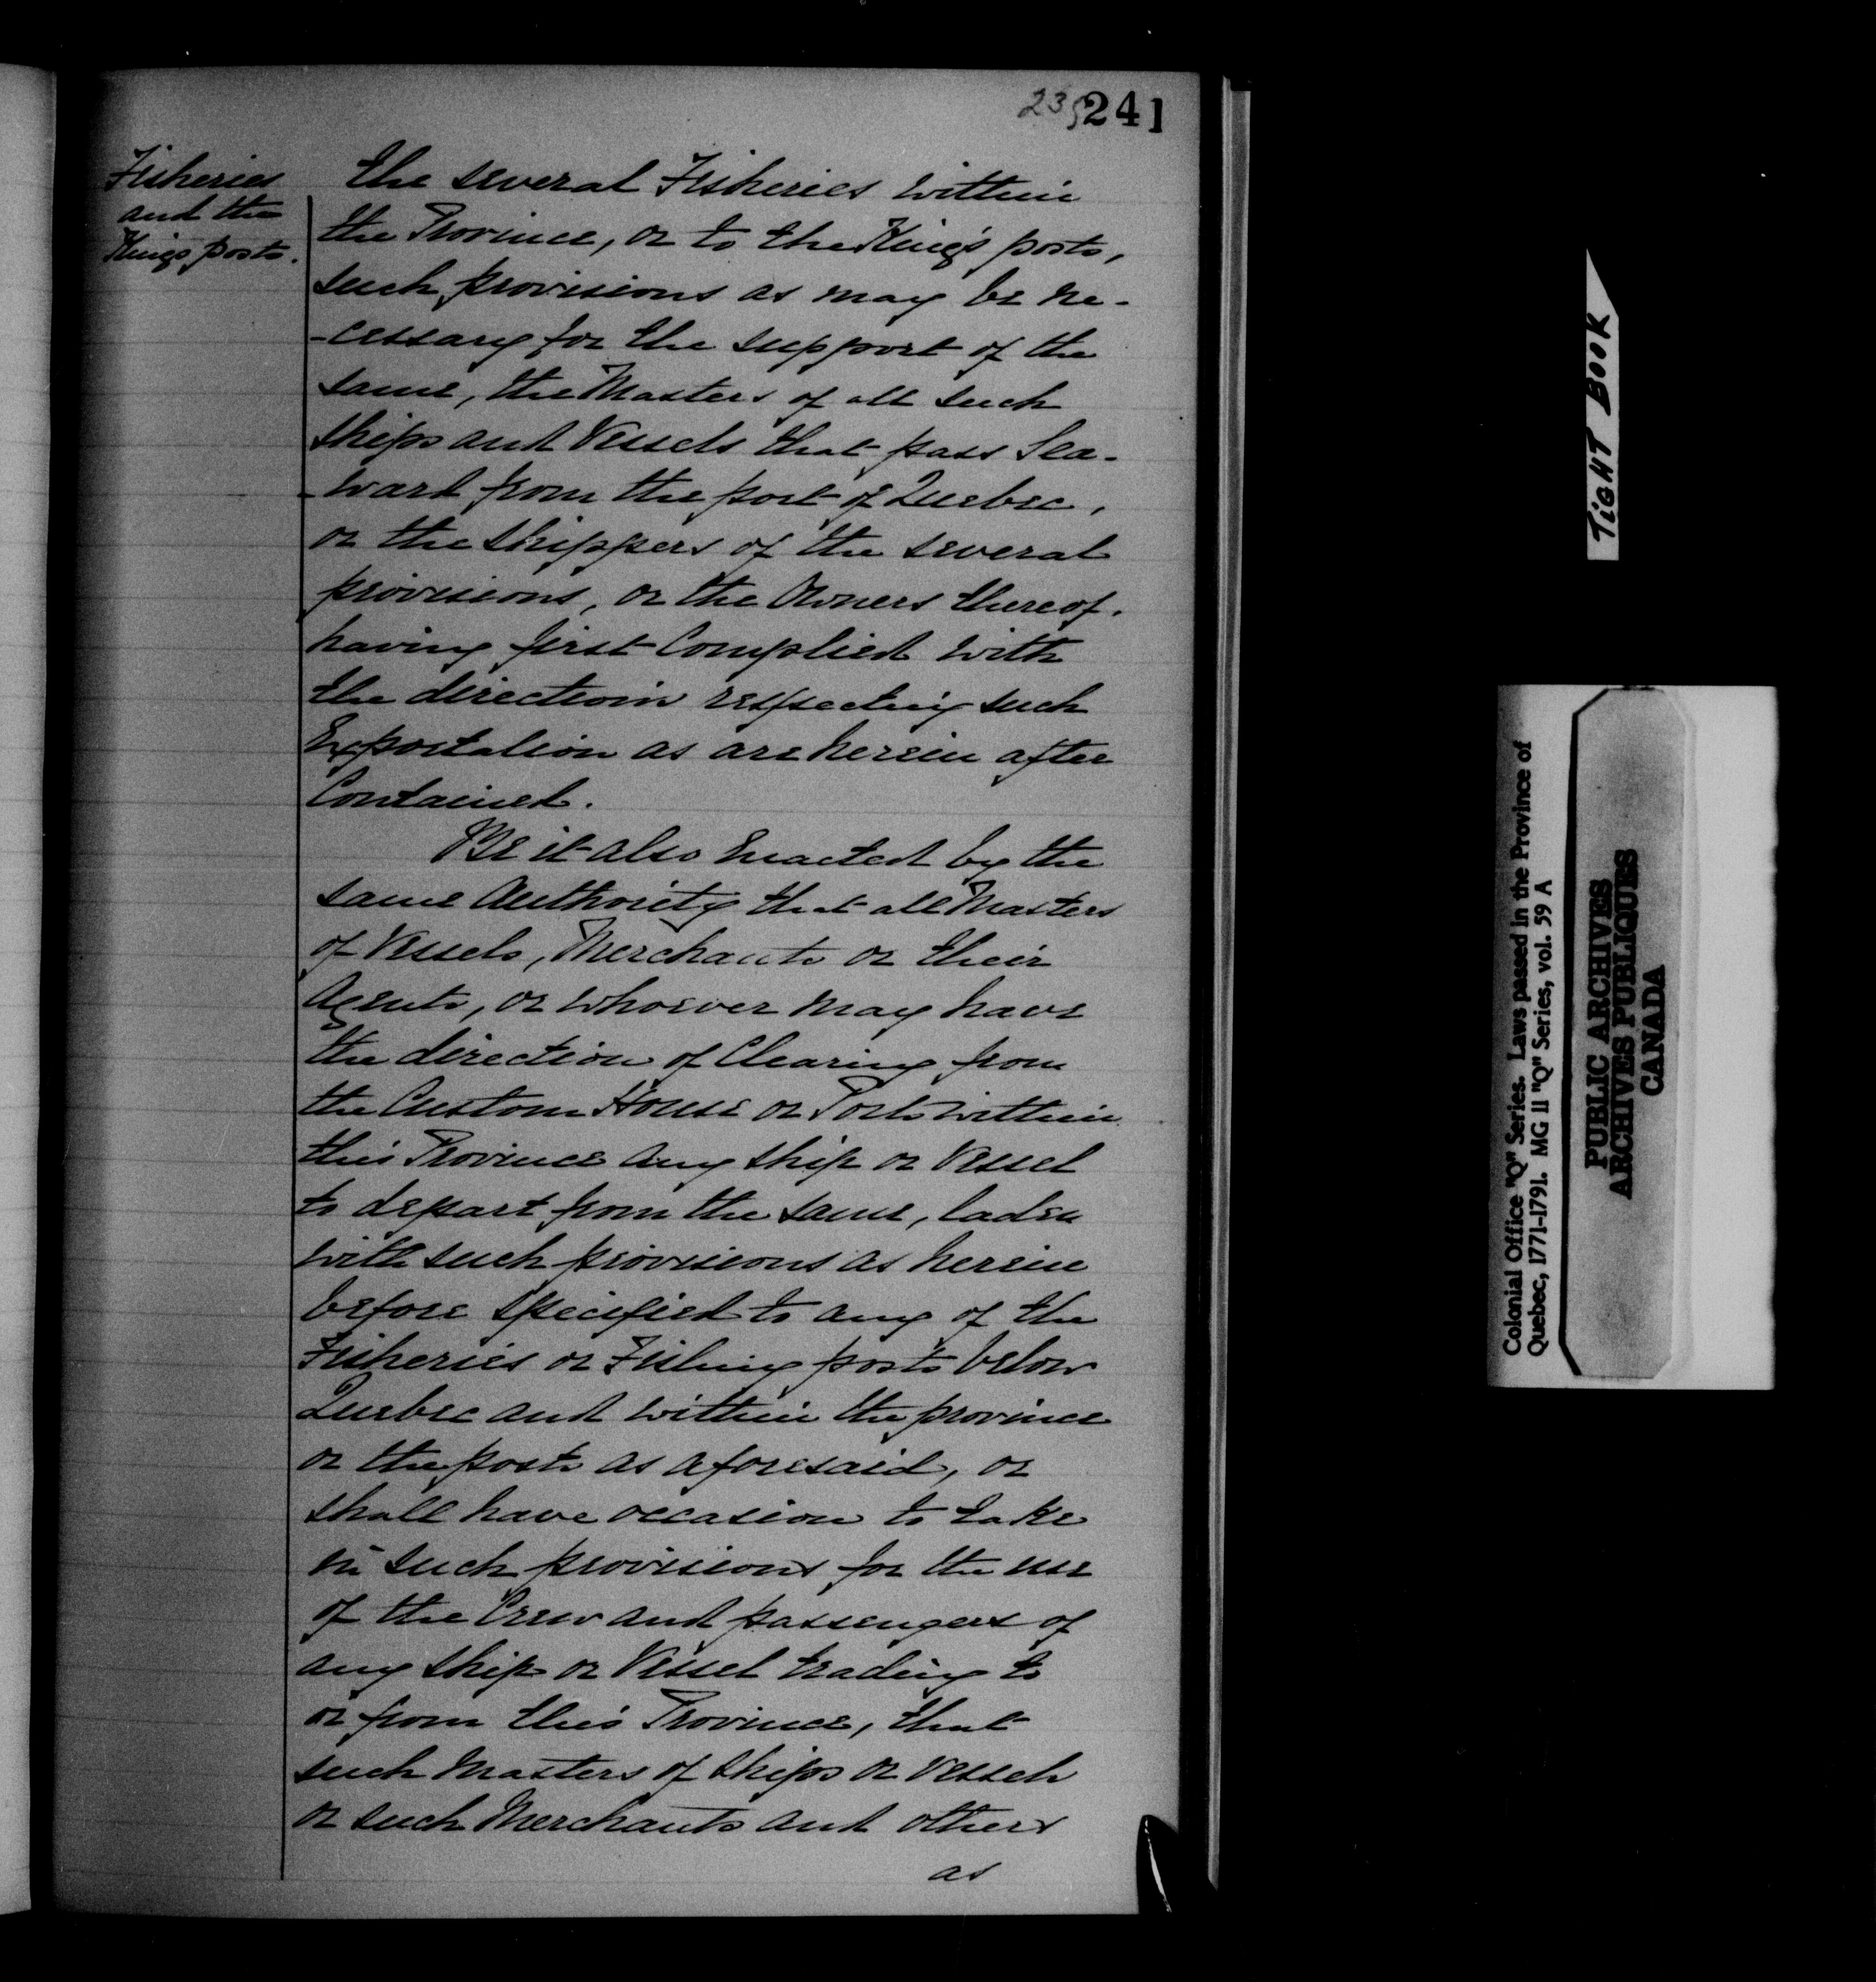 235 241
Fisheries
and the
Kings posts.
the several Fisheries within
the Province, or to the King's posts,
such provisions as may be ne-
-cessary for the support of the
same, the Masters of all such
ships and Vessels that pass Sea-
-ward from the port of Quebec,
or the shippers of the several
provisions, or the Owners thereof.
having first Complied with
the directions respecting such
Exportation as are herein after
Contained.
Be it also Enacted by the
same Authority that all Masters
of Vessels, Merchants or their
Agents, or whoever may have
the direction of Clearing from
the Custom House or Ports within
this Province any ship or Vessel
to depart from the same, laden
with such provisions as herein
before specified to any of the
Fisheries or Fishing posts below
Quebec and within the province
or the posts as aforesaid, or
shall have occasion to take
in such provisions for the use
of the Crew and passengers of
any ship or Vessel trading to
or from this Province, that
such Masters of ships or vessels
or such Merchants and others
as
TIGHT BOOK
Colonial Office "Q" Series. Laws passed in the Province of
Quebec, 1771-1791. MG 11 "Q" Series, vol. 59 A
PUBLIC ARCHIVES
ARCHIVES PUBLIQUES
CANADA